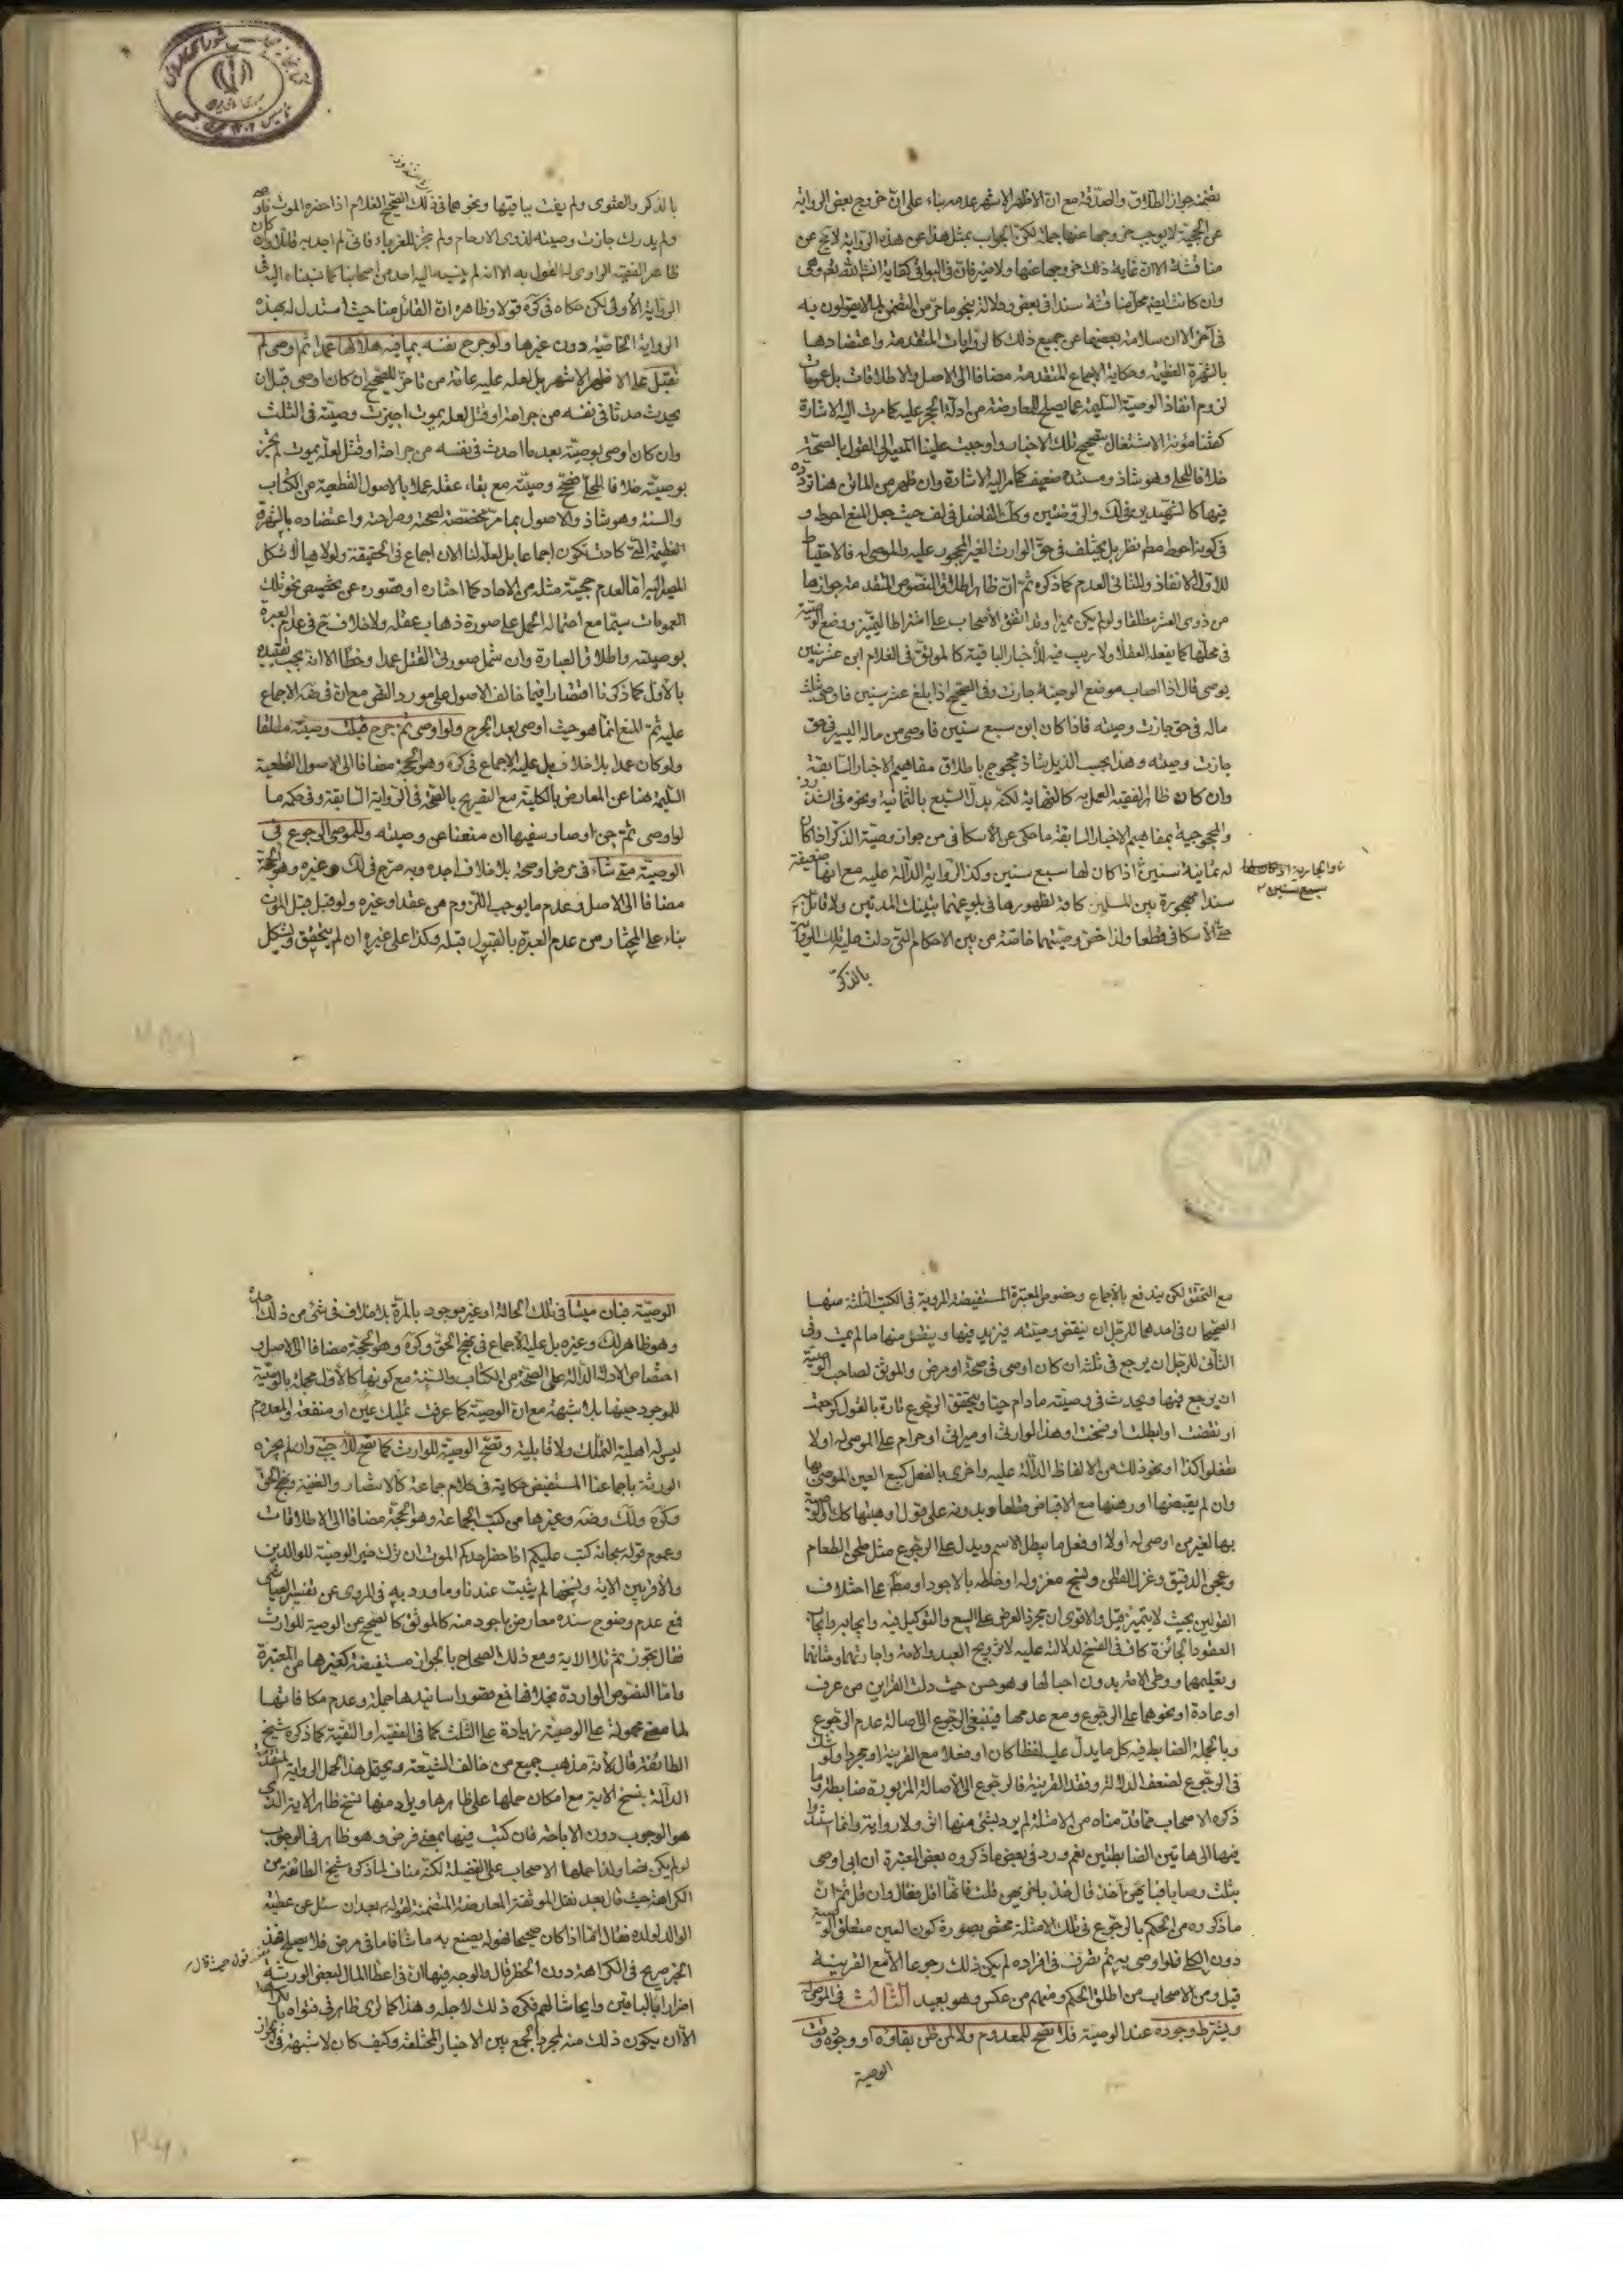 تضمنه جواز الطلاق والصدقة مع ان الاظهر الاشهر عدمه بناء على ان خروج بعض الرواية
عن الحجية لا يوجب خروجها عنها جملة لكن الجواب بمثل هذا عن هذه الرواية لا يخ عن
مناقشة الا ان غاية ذلك خروجها عنها ولا ضير فان في البواقي كفاية انشاء الله تع وهي
وان كانت ايضا محل مناقشة سندا في بعض ودلالة بنحو ما مر من التضمن لما لا يقولون به
في آخر الا ان سلامة بعضها عن جميع ذلك كالروايات المتقدمة واعتضادها
بالشهرة العظيمة وحكاية الاجماع المتقدمة مضافا الى الاصل والاطلاقات بل عمومات
لزوم انفاذ الوصية السليمة عما يصلح للمعارضة من ادلة الحجر عليه كما مرت اليه الاشارة
كفتنا مؤنة الاشتغال بتصحيح تلك الاخبار واوجبت علينا المصير الى القول بالصحة
خلافا للحلي وهو شاذ ومستنده ضعيف كما مر اليه الاشارة وان ظهر من الماتن هنا تردده
فيها كالشهيدين في لك والروضتين وكذا الفاضل في لف حيث جعل المنع احوط و
في كونه احوط مطم نظر بل يختلف في حق الوارث الغير المحجور عليه والموصى له فالاحتياط
للاول الانفاذ وللثاني العدم كما ذكره ثم ان ظاهر اطلاق النصوص المتقدمة جوازها
من ذوي العشر مطلقا ولو لم يكن مميزا وقد اتفق الأصحاب على اشتراط التميز ووضع الوصية
في محلها كما يفعله العقلاء ولا ريب فيه للأخبار الباقية كالموثق في الغلام ابن عشر سنين
يوصي قال اذا اصاب موضع الوصية جازت وفي الصحيح اذا بلغ عشر سنين فاوصى بثلث
ماله في حق جازت وصيته فاذا كان ابن سبع سنين فاوصى من ماله اليسير في حق
جازت وصيته وهذا بحسب الذيل شاذ محجوج باطلاق مفاهيم الاخبار السابقة
وان كان ظاهر الفقيه العمل به كالنهاية لكنه بدل السبع بالثمانية ونحوه في الشذوذ
والمحجوجية بمفاهيم الاخبار السابقة ما حكي عن الاسكافي من جواز وصية الذكر اذا كان
له ثمانية سنين اذا كان لها سبع سنين وكذا الرواية الدالة عليه مع انها ضعيفة
والجارية اذا كان لها
سبع سنين
سندا مهجورة بين المسلمين كافة لظهورها في بلوغهما بتينك المدتين ولا قائل به
حتى الاسكافي قطعا ولذا خص وصيتهما خاصة من بين الاحكام التي دلت عليه تلك الرواية
بالذكر
بالذكر والفتوى ولم يفت بباقيتها ونحوهما في ذلك الصحيح الغلام اذا حضره الموت فاوصى
ولم يدرك جازت وصيته لذوي الارحام ولم تجز للغرباء فاني لم اجد به قائلا وان كان
ظاهر الفقيه الراوي له القول به الا انه لم ينسبه اليه احد من اصحابنا كما نسبناه اليه في
الرواية الأولى لكن حكاه في كره قولا وظاهره ان القائل منا حيث استدل له بهذه
الرواية الخاصية دون غيرها ولو جرح نفسه بما فيه هلاكها عمدا ثم اوصى لم
تقبل على الاظهر الاشهر بل لعله عليه عامة من تاخر للصحيح ان كان اوصى قبل ان
يحدث حدثا في نفسه من جراحة او قتل لعله يموت اجيزت وصيته في الثلث
وان كان اوصى بوصية بعد ما احدث في نفسه من جراحة او قتل لعله يموت لم تجز
بوصيته خلافا للحلي فتصح وصيته مع بقاء عقله عملا بالاصول القطعية من الكتاب
والسنة وهو شاذ والاصول بما مر مخصصة لصحته وصراحته واعتضاده بالشهرة
العظيمة التي كادت تكون اجماعا بل لعله لنا الان اجماع في الحقيقة ولولاها لاشكل
المصير اليه اما لعدم حجية مثله من الاحاد كما اختاره او قصوره عن تخصيص نحو تلك
العمومات سيما مع احتماله الحمل على صورة ذهاب عقله ولا خلاف ح في عدم العبرة
بوصيته واطلاق العبارة وان شمل صورتي القتل عمدا وخطأ الا انه يجب تقييده
بالاول كما ذكرنا اقتصارا فيما خالف الاصول على مورد النص مع ان في ضه الاجماع
عليه ثم المنع انما هو حيث اوصى بعد الجرح ولو اوصى ثم جرح قبلت وصيته مطلقا
ولو كان عمدا بلا خلاف بل عليه الاجماع في كره وهو الحجة مضافا الى الاصول القطعية
السليمة هنا عن المعارض بالكلية مع التصريح بالصحة في الرواية السابقة وفي حكمه ما
لو اوصى ثم جن او صار سفيها ان منعنا عن وصيته وللموصي الرجوع في
الوصية متى شاء في مرض او صحة بلا خلاف اجده وبه صرح في لك وغيره وهو الحجة
مضافا الى الاصل وعدم ما يوجب اللزوم من عقد او غيره ولو قبل قبل الموت
بناء على المختار من عدم العبرة بالقبول قبله وكذا على غيره ان لم يتحقق ويشكل
مع التحقق لكن يندفع بالاجماع وخصوص المعتبرة المستفيضة المروية في الكتب الثلثة منها
الصحيحان في احدهما للرجل ان ينقض وصيته فيزيد فيها وينقص منها ما لم يمت وفي
الثاني للرجل ان يرجع في ثلثه ان كان اوصى في صحة او مرض والموثق لصاحب الوصية
ان يرجع فيها ويحدث في وصيته ما دام حيا ويتحقق الرجوع تارة بالقول كرجعت
او نقضت او ابطلت او فسخت او هذا لوارثي او ميراثي او حرام على الموصى له او لا
تفعلوا كذا او نحو ذلك من الالفاظ الدالة عليه واخرى بالفعل كبيع العين الموصى بها
وان لم يقبضها او رهنها مع الاقباض قطعا وبدونه على قول او هبتها كك او الوصية
بها لغير من اوصى له اولا او فعل ما يبطل الاسم ويدل على الرجوع مثل طحن الطعام
وعجن الدقيق وغزل القطن ونسج مغزوله او خلطه بالاجود او مطم على اختلاف
القولين بحيث لا يتميز قيل والاقوى ان مجرد العرض على البيع والتوكيل فيه وايجابه وايجاب
العقود الجائزة كاف في الفسخ لدلالته عليه لا تزويج العبد والامة واجارتهما وختانهما
وتعليمهما ووطي الامة بدون احبالها وهو حسن حيث دلت القراين من عرف
او عادة او نحوهما على الرجوع ومع عدمها فينبغي الرجوع الى اصالة عدم الرجوع
وبالجملة الضابط فيه كل ما يدل عليه لفظا كان او فعلا مع القرينة او مجردا ولو شك
في الرجوع لضعف الدلالة وفقد القرينة فالرجوع الى الاصالة المزبورة ضابطة وما
ذكره الاصحاب مما قدمناه من الامثلة لم يرد بشئ منها اثر ولا رواية وانما استندوا
فيها الى هاتين الضابطتين نعم ورد في بعض ما ذكروه بعض المعتبرة ان ابي اوصى
بثلث وصايا فبايهن آخذ قال خذ باخريهن قلت فانها اقل فقال وان قل ثم ان
ما ذكروه من الحكم بالرجوع في تلك الامثلة مختص بصورة كون العين متعلق الوصية
دون الكلي فلو اوصى به ثم تصرف في افراده لم يكن ذلك رجوعا الا مع القرينة
قيل ومن الاصحاب من اطلق الحكم ومنهم من عكس وهو بعيد الثالث في الموصى له
ويشترط وجوده عند الوصية فلا تصح للمعدوم ولا لمن ظن بقاؤه او وجوده وقت
الوصية
الوصية فبان ميتا في تلك الحالة او غير موجود بالمرة بلا خلاف في شئ من ذلك اجده
وهو ظاهر لك وغيره بل عليه الاجماع في نهج الحق وكره وهو الحجة مضافا الى الاصل و
اختصاص الادلة الدالة على الصحة من الكتاب والسنة مع كونها كالاول مجملة بالوصية
للموجود حينها بلا شبهة مع ان الوصية كما عرفت تمليك عين او منفعة والمعدوم
ليس له اهلية التملك ولا قابلية وتصح الوصية للوارث كما تصح للاجنبي وان لم يجزه
الورثة باجماعنا المستفيض حكاية في كلام جماعة كالانتصار والغنية ونهج الحق
وكره ولك وضه وغيرها من كتب الجماعة وهو الحجة مضافا الى الاطلاقات
وعموم قوله سبحانه كتب عليكم اذا حضر احدكم الموت ان ترك خيرا الوصية للوالدين
والاقربين الاية ونسخها لم يثبت عندنا وما ورد به في المروي عن تفسير العياشي
فمع عدم وضوح سنده معارض باجود منه كالموثق كالصحيح عن الوصية للوارث
فقال تجوز ثم تلا الاية ومع ذلك الصحاح بالجواز مستفيضة كغيرها من المعتبرة
واما النصوص الواردة بخلافها فمع قصور اسانيدها جملة وعدم مكافاتها
لما مضى محمولة على الوصية زيادة على الثلث كما في الفقيه او التقية كما ذكره شيخ
الطائفة قال لأنه مذهب جميع من خالف الشيعة ويحتمل هذا الحمل الرواية المتقدمة
الدالة بنسخ الاية مع امكان حملها على ظاهرها ويراد منها نسخ ظاهر الاية الذي
هو الوجوب دون الاباحة فان كتب فيها بمعنى فرض وهو ظاهر في الوجوب
لو لم يكن نصا ولذا حملها الاصحاب على الفضيلة لكنه مناف لما ذكره شيخ الطائفة من
الكراهة حيث قال بعد نقل الموثقة المعارضة المتضمنة لقوله بعد ان سئل عن عطية
الوالد لولده فقال اما اذا كان صحيحا فهو له يصنع به ما شاء فاما في مرض فلا يصلح هذ
الخبر صريح في الكراهة دون الحظر قال والوجه فيها ان في اعطاء المال لبعض الورثة
اضرارا بالباقين وايحاشا لهم فكره ذلك لاجله وهذا كما ترى ظاهر في فتواه بالكراهة
الا ان يكون ذلك منه لمجرد الجمع بين الاخبار المختلفة وكيف كان لا شبهة في الجواز